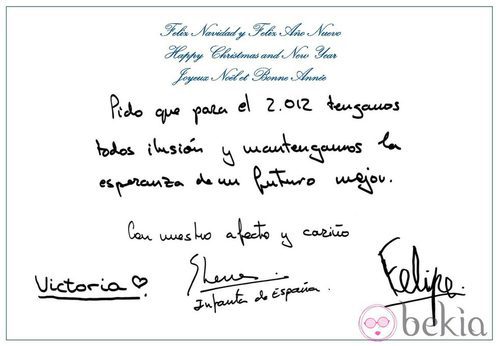 Feliz Navidad y Feliz Año Nuevo
Happy Christmas and New Year
Joyeux Noël et Bonne Année
Pido que para el 2.012 tengamos
todos ilusión y mantengamos la
esperanza de un futuro mejor.
Con nuestro afecto y cariño
Victoria ♡.
Elena.
Infanta de España.
Felipe.
bekia